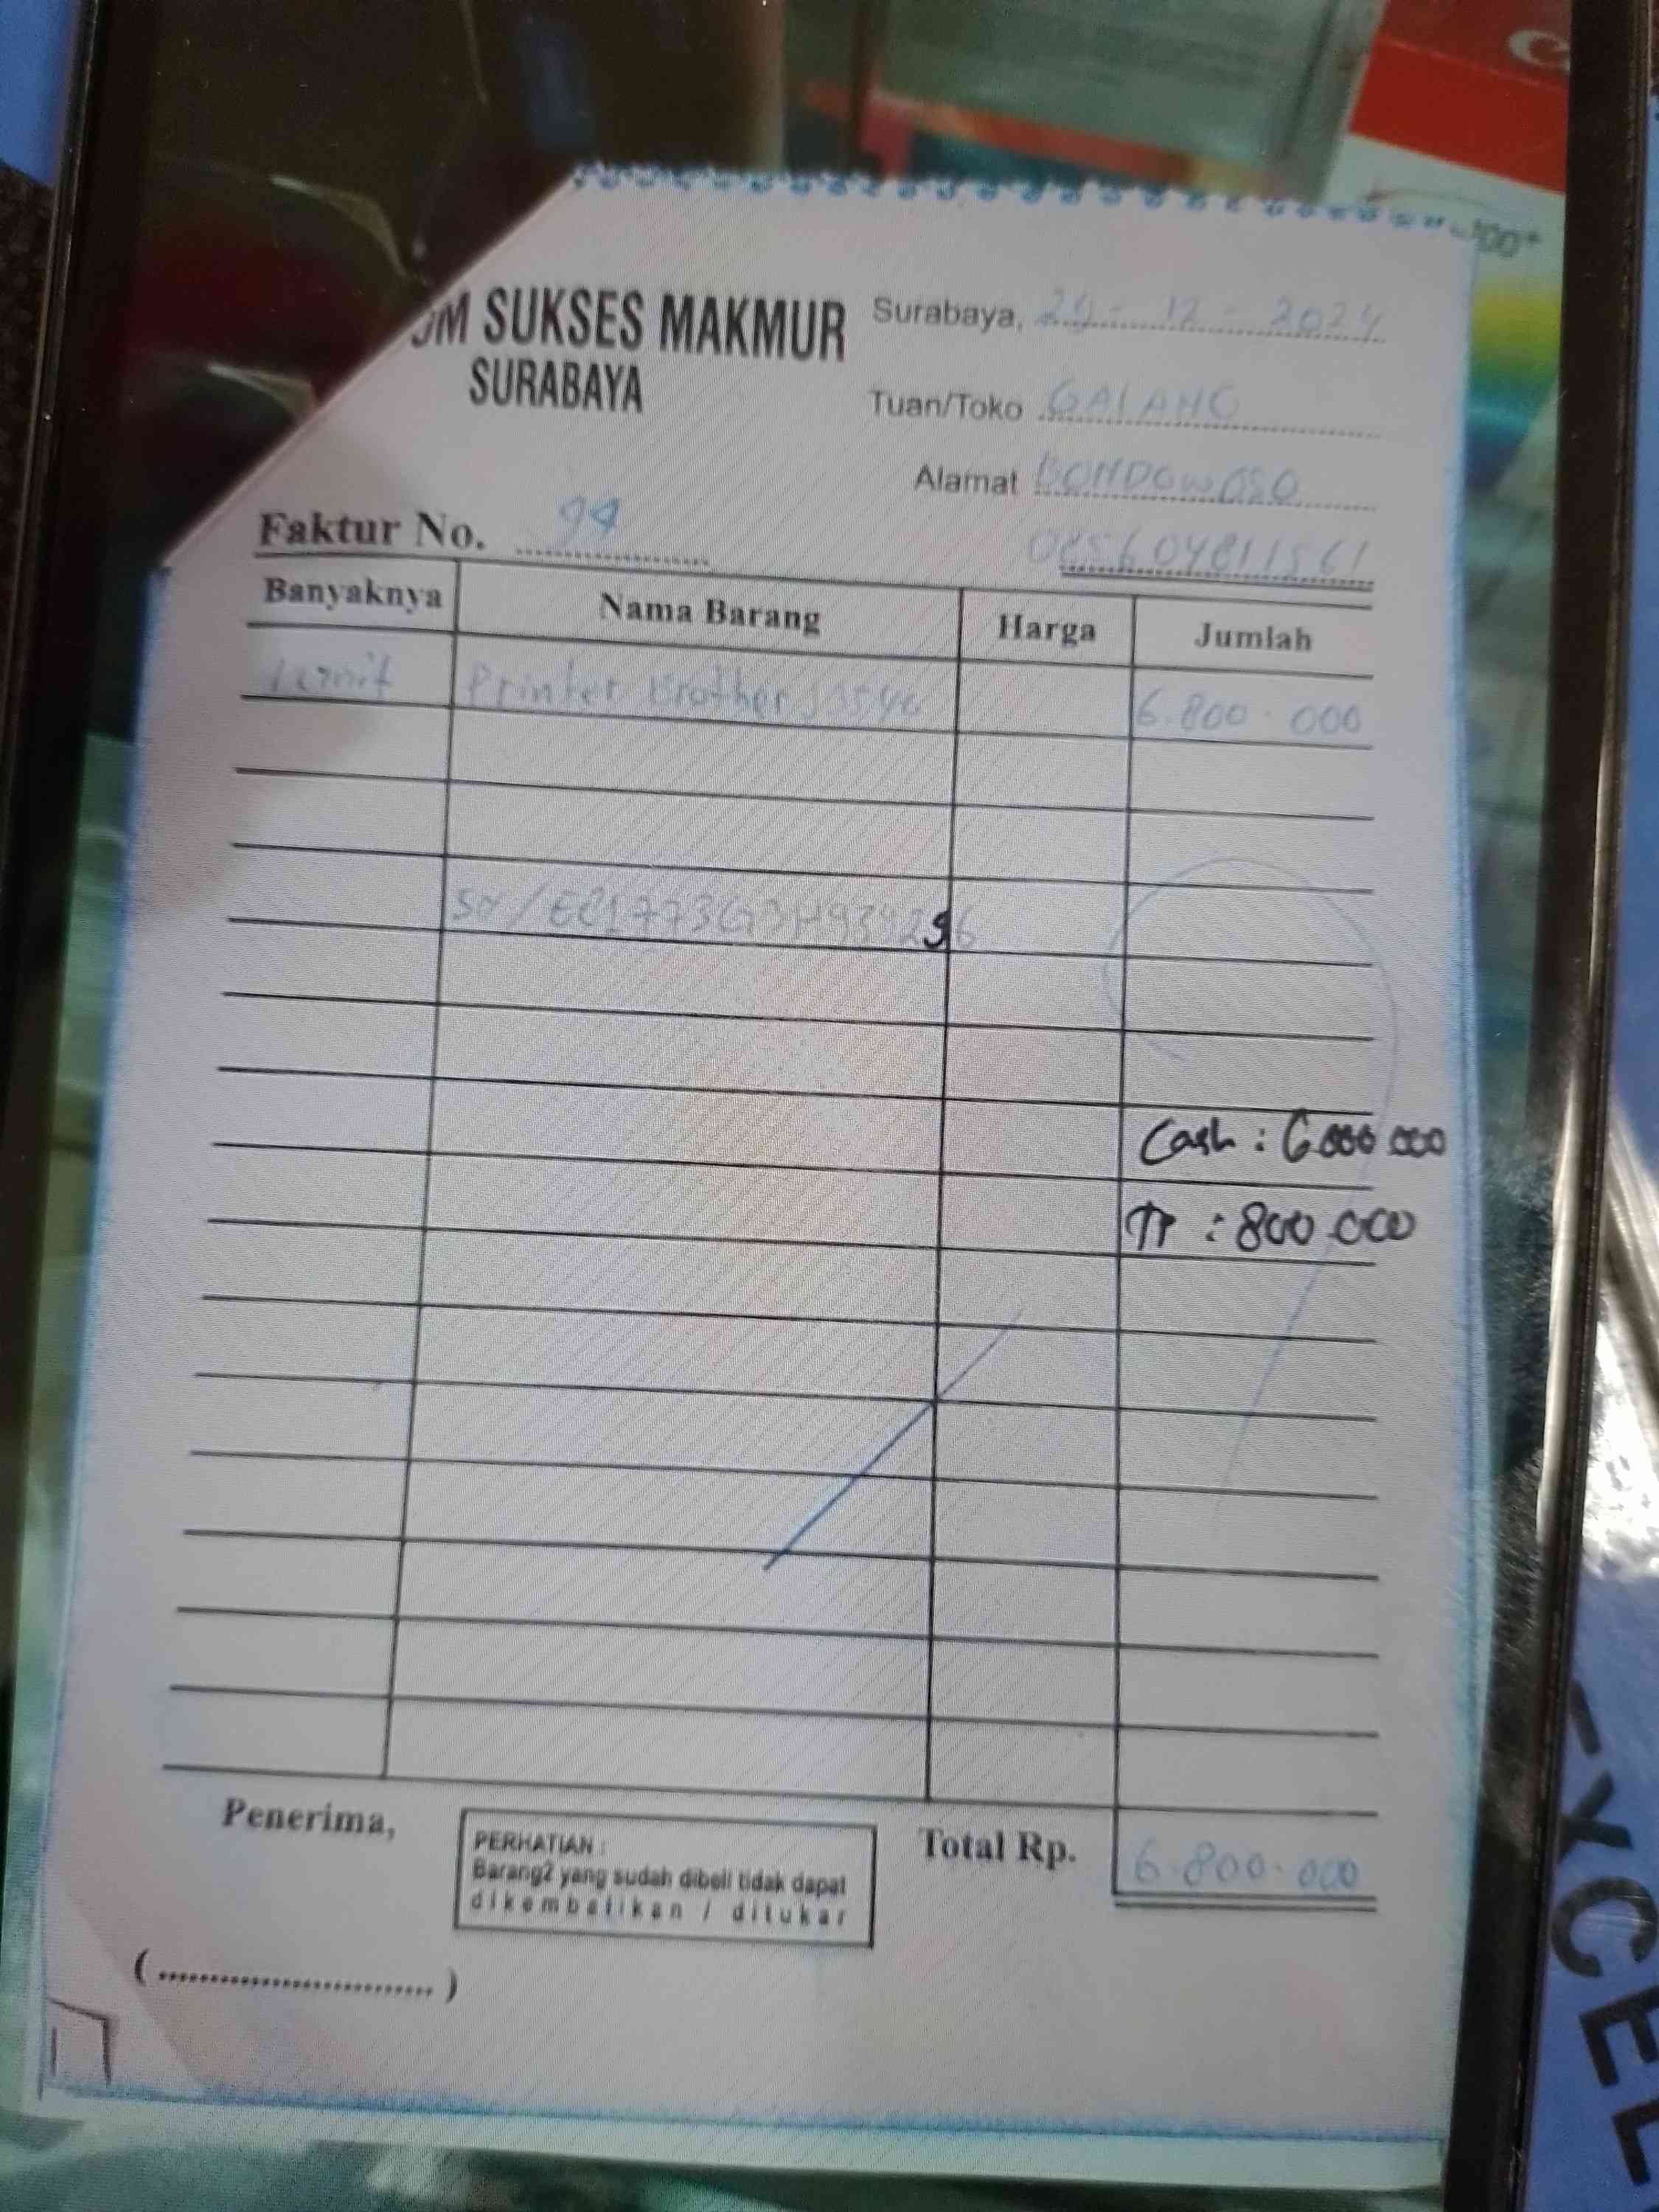 SUKSES MAKMUR
SURABAYA
Surabaya, 24 - 12 - 2024
Tuan/Toko GALANG
Alamat BONDOWOSO
085604811561
Faktur No. 99
Banyaknya Nama Barang Harga Jumlah
1 unit Printer Brother 6.800.000
Cash : 6.000.000
TF : 800.000
Penerima,
PERHATIAN :
Barang2 yang sudah dibeli tidak dapat
dikembalikan / ditukar
Total Rp. 6.800.000
(..............................)